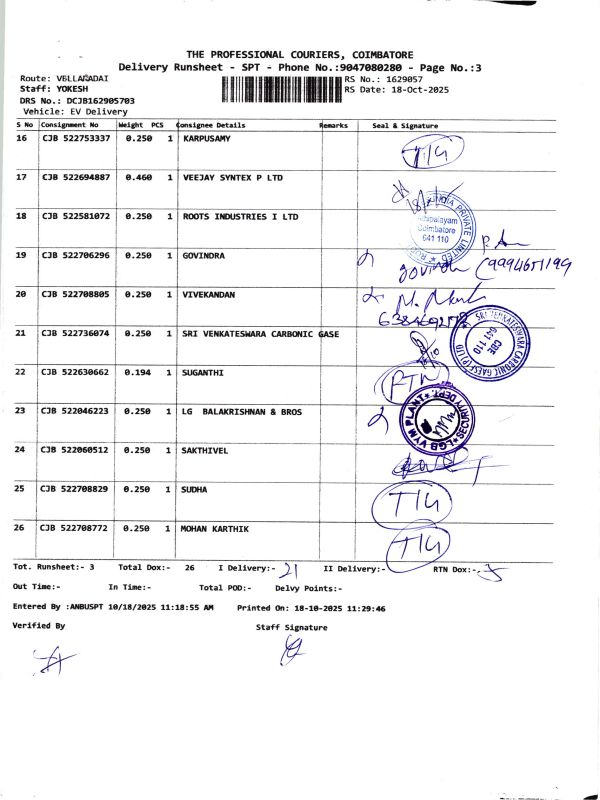 THE PROFESSIONAL COURIERS, COIMBATORE
Delivery Runsheet - SPT - Phone No.:9047080280 - Page No.:3
Route: VELLAKADAI
Staff: YOKESH
RS No.: 1629057
DRS No.: DCJB162905703
RS Date: 18-Oct-2025
Vehicle: EV Delivery
S No Consignment No Weight PCS Consignee Details Remarks Seal & Signature
16 CJB 522753337 0.250 1 KARPUSAMY
17 CJB 522694887 0.460 1 VEEJAY SYNTEX P LTD
18 CJB 522581072 0.250 1 ROOTS INDUSTRIES I LTD
INDIA PRIVATE LIMITED
Coimbatore
641 110
19 CJB 522706296 0.250 1 GOVINDRA
govindh (9994651199
20 CJB 522708805 0.250 1 VIVEKANDAN
21 CJB 522736074 0.250 1 SRI VENKATESWARA CARBONIC GASE
SRI VENKATESWARA CARBONIC GASES (P) LTD
CBE
641 110
22 CJB 522630662 0.194 1 SUGANTHI
RTN
23 CJB 522046223 0.250 1 LG BALAKRISHNAN & BROS
LGB VYM PLANT SECURITY DEPT.
24 CJB 522060512 0.250 1 SAKTHIVEL
25 CJB 522708829 0.250 1 SUDHA
26 CJB 522708772 0.250 1 MOHAN KARTHIK
Tot. Runsheet:- 3 Total Dox:- 26 I Delivery:- 21 II Delivery:- RTN Dox:- 5
Out Time:- In Time:- Total POD:- Delvy Points:-
Entered By :ANBUSPT 10/18/2025 11:18:55 AM Printed On: 18-10-2025 11:29:46
Verified By Staff Signature